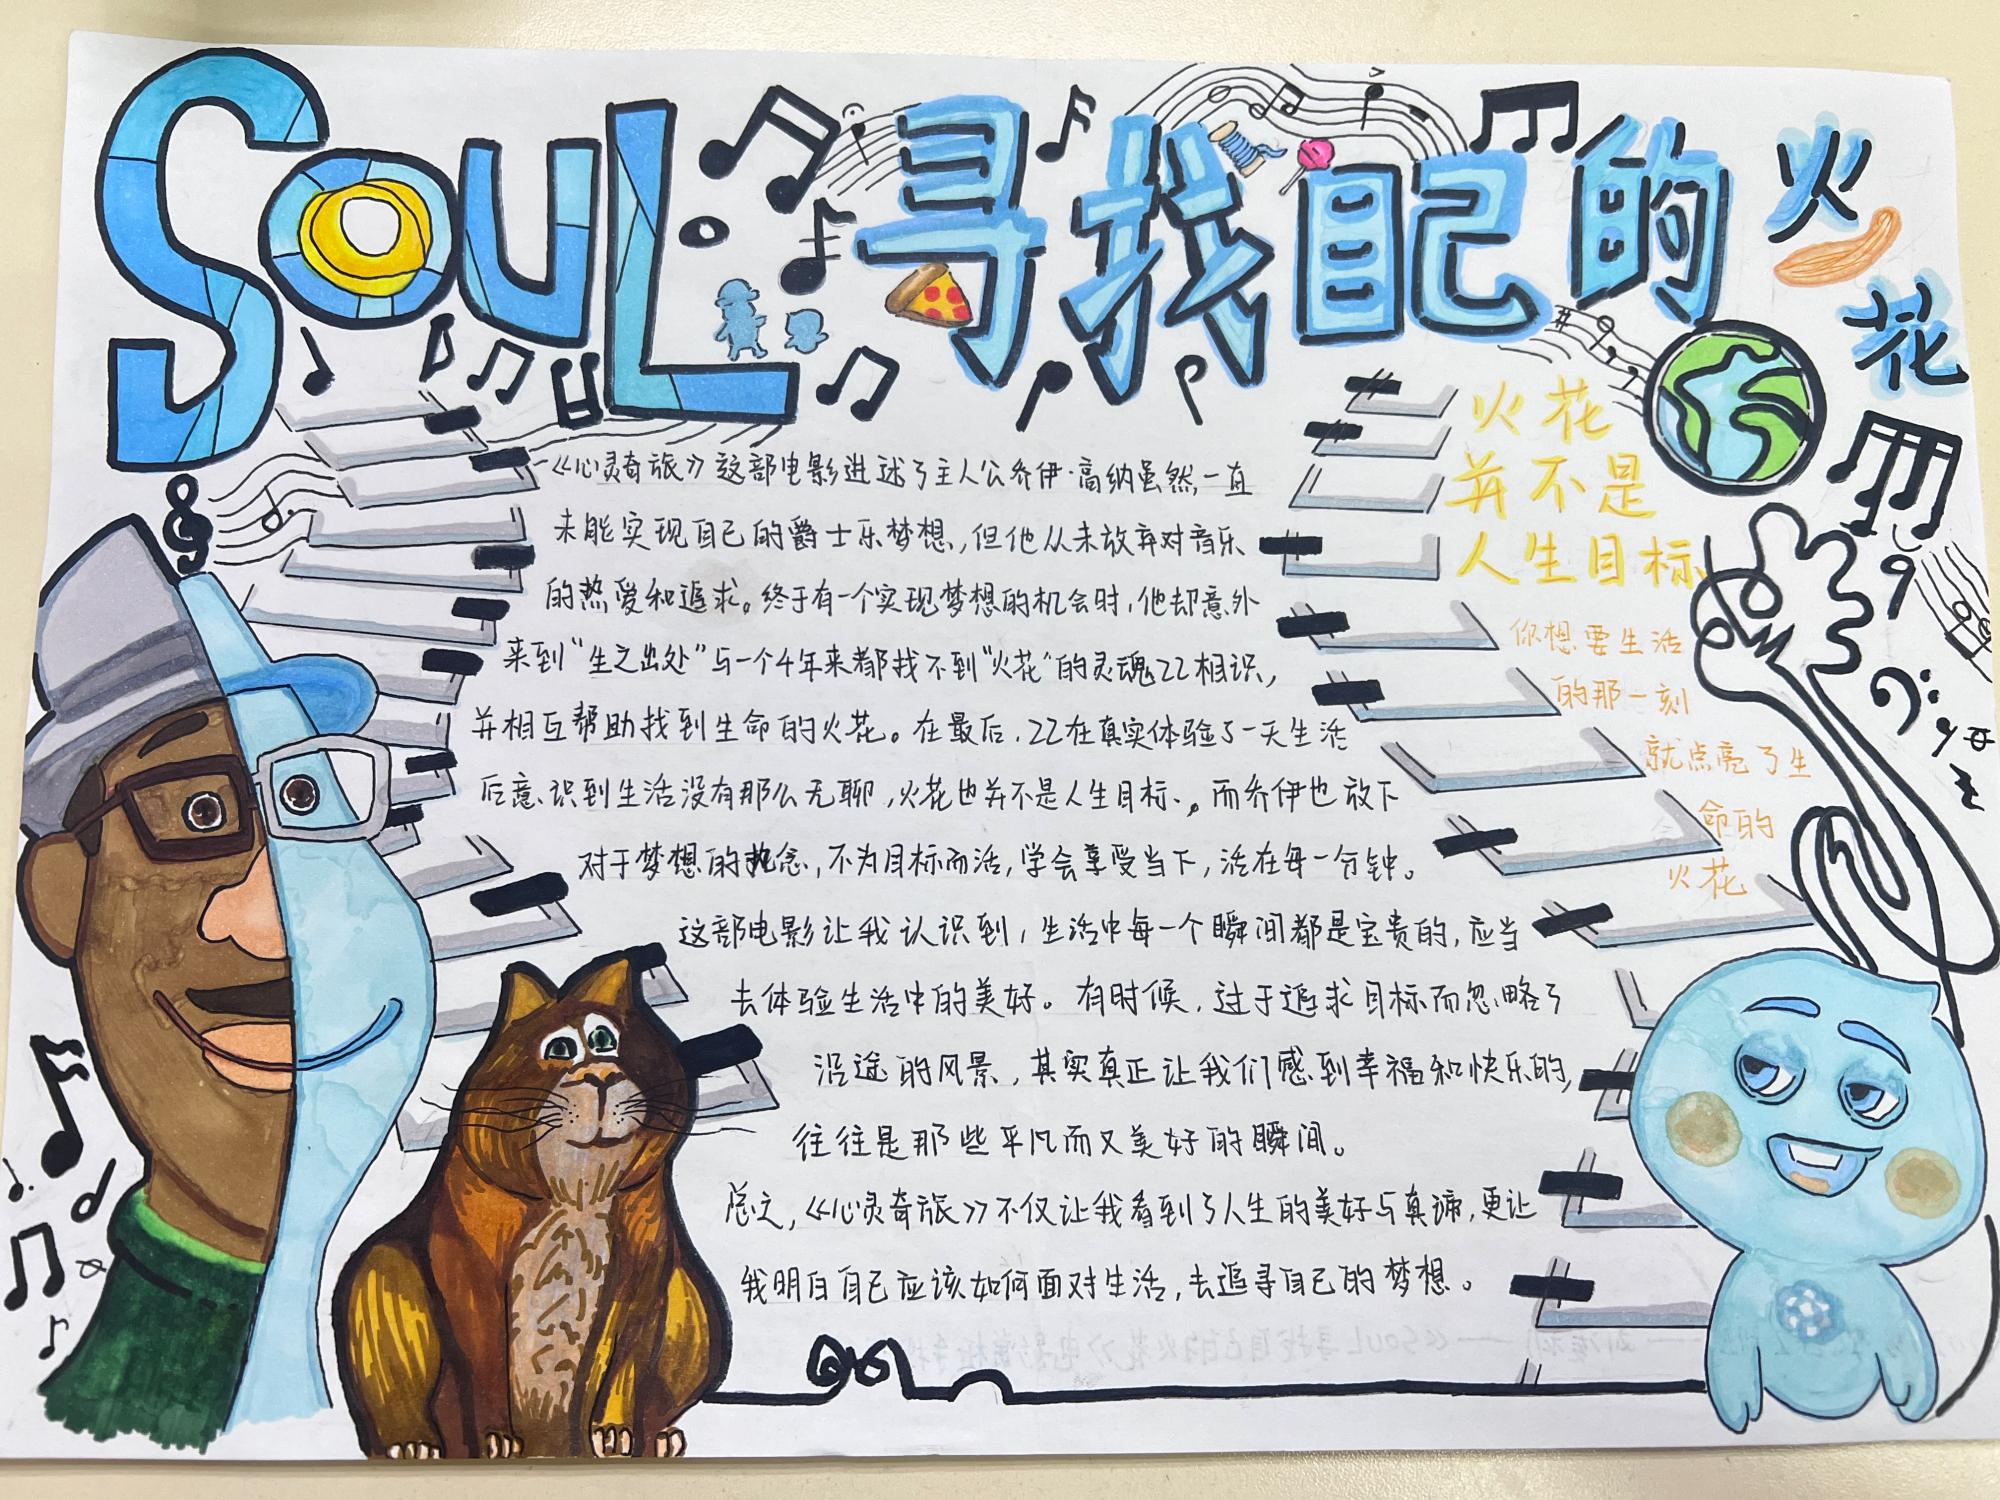 SOUL 寻找自己的火花
《心灵奇旅》这部电影讲述了主人公乔伊·高纳虽然一直
未能实现自己的爵士乐梦想,但他从未放弃对音乐
的热爱和追求。终于有一个实现梦想的机会时,他却意外
来到“生之出处”与一个4年来都找不到“火花”的灵魂22相识,
并相互帮助找到生命的火花。在最后,22在真实体验了一天生活
后意识到生活没有那么无聊,火花也并不是人生目标。而乔伊也放下
对于梦想的执念,不为目标而活,学会享受当下,活在每一分钟。
这部电影让我认识到,生活中每一个瞬间都是宝贵的,应当
去体验生活中的美好。有时候,过于追求目标而忽略了
沿途的风景,其实真正让我们感到幸福和快乐的,
往往是那些平凡而又美好的瞬间。
总之,《心灵奇旅》不仅让我看到了人生的美好与真谛,更让
我明白自己应该如何面对生活,去追寻自己的梦想。
火花
并不是
人生目标
你想要生活
的那一刻
就点亮了生
命的
火花